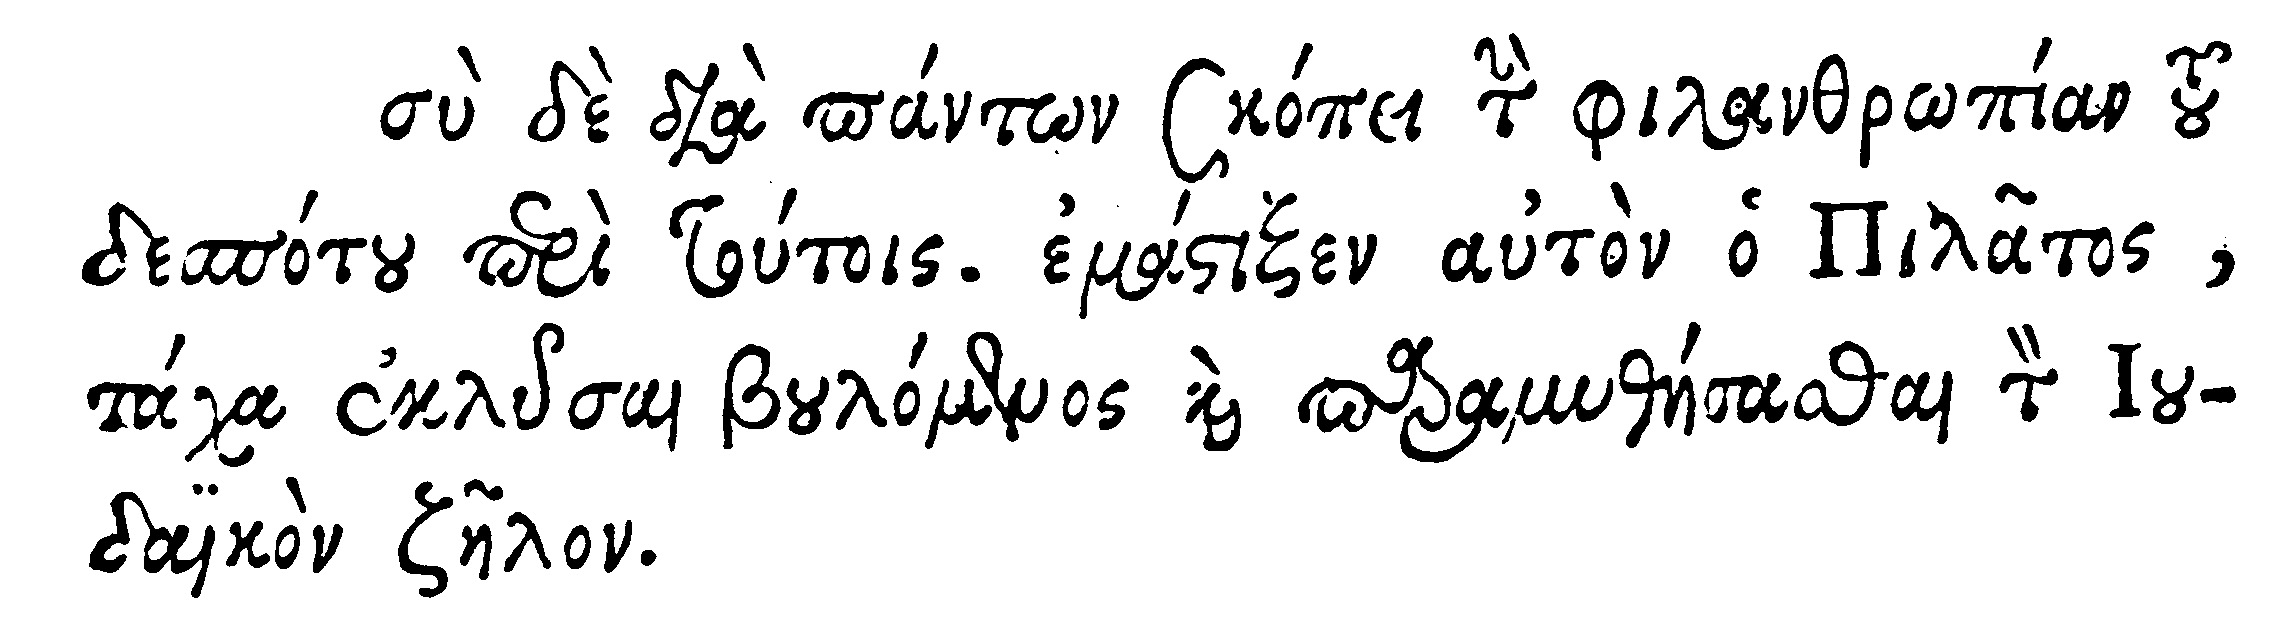 σὺ δὲ διὰ πάντων σκόπει τὴν φιλανθρωπίαν τοῦ
δεσπότου περὶ τούτοις. ἐμάστιξεν αὐτὸν ὁ Πιλᾶτος,
τάχα ἐκλῦσαι βουλόμενος καὶ παραμυθήσασθαι τὸν Ἰου-
δαϊκὸν ζῆλον.